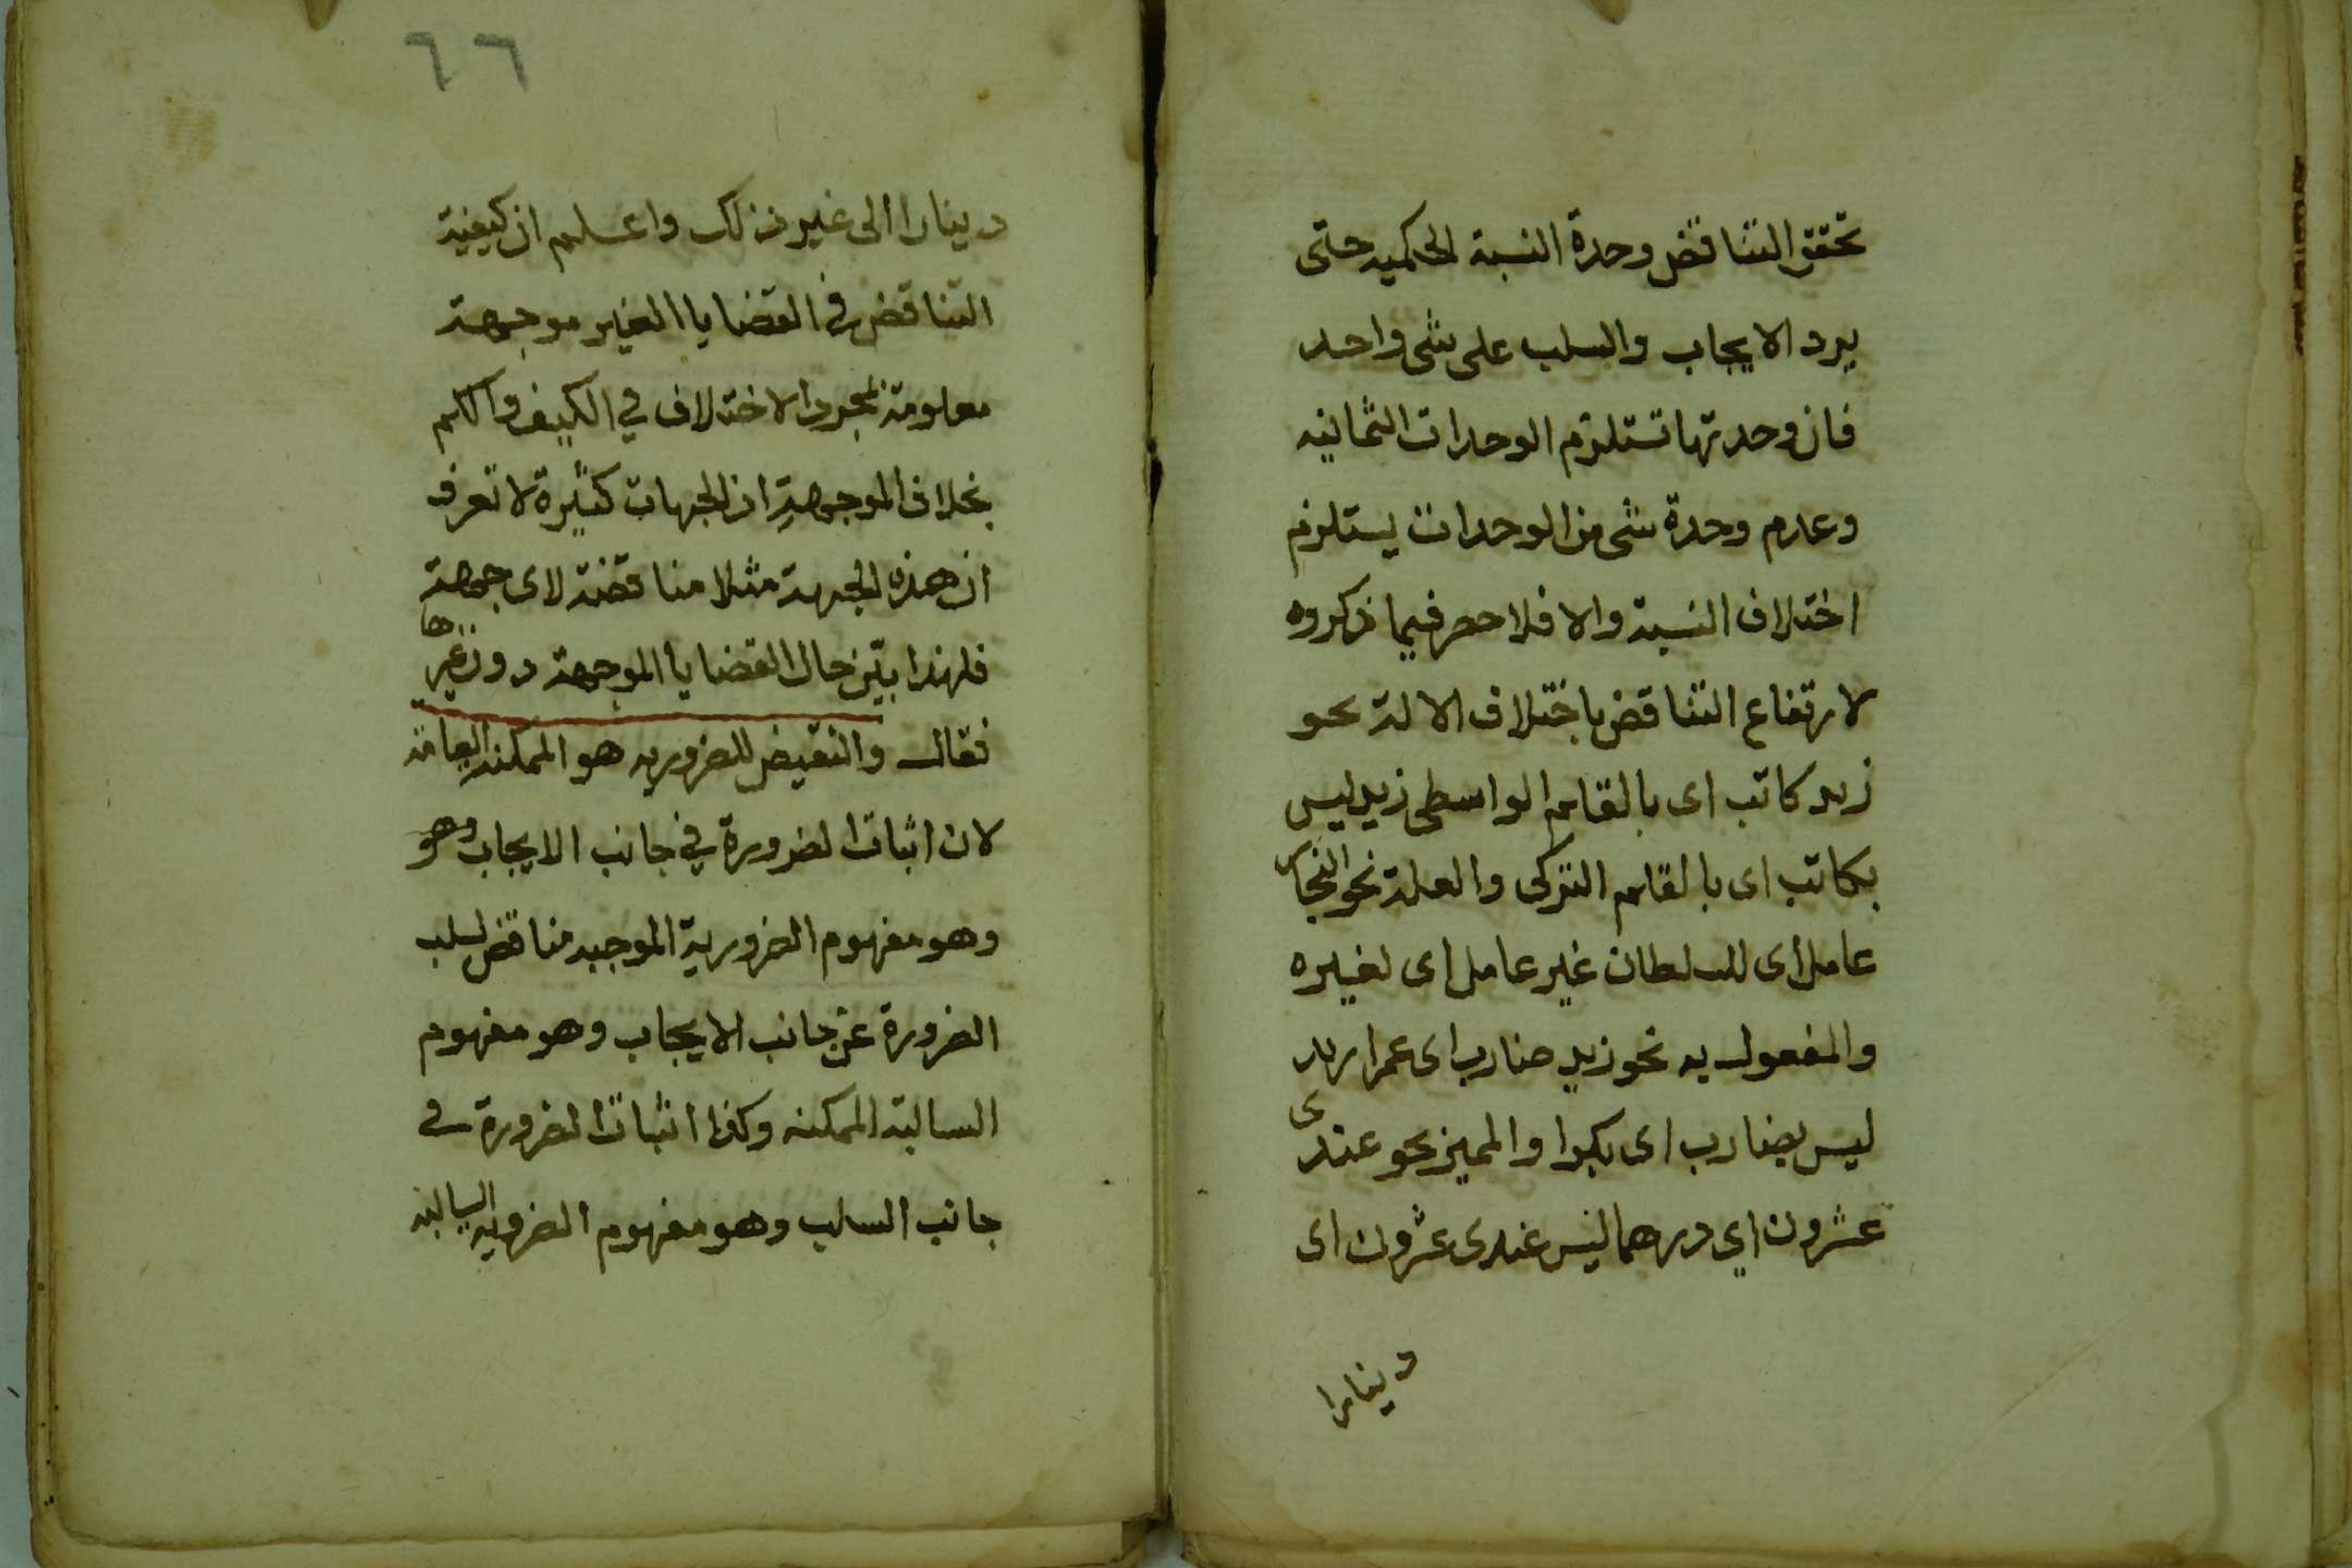 تحقق التناقض وحدة النسبة الحكميه حتى
يرد الايجاب والسلب على شى واحد
فان وحدتها تستلزم الوحدات الثمانيه
وعدم وحدة شى من الوحدات يستلزم
اختلاف النسبة والا فلا حصر فيما ذكروه
لارتفاع التناقض باختلاف الالة نحو
زيد كاتب اى بالقلم الواسطى زيد ليس
بكاتب اى بالقلم التركى والعلة نحو النجار
عامل اى للسلطان غير عامل اى لغيره
والمفعول به نحو زيد ضارب اى عمرا زيد
ليس بضارب اى بكرا والمميز نحو عندى
عشرون اي درهما ليس عندى عشرون اى
دينارا
٦٦
دينارا الى غير ذلك واعلم ان كيفية
التناقض فى القضايا الغير موجهة
معلومة بمجرد الاختلاف في الكيف والكم
بخلاف الموجهة اذ الجهات كثيرة لا تعرف
ان هذه الجهة مثلا مناقضة لاى جهة
فلهذا بيّن حال القضايا الموجهة دون غيرها
فقال والنقيض للضروريه هو الممكنة العامة
لان اثبات الضرورة في جانب الايجاب وهو
وهو مفهوم الضرورية الموجبه مناقض لسلب
الضرورة عن جانب الايجاب وهو مفهوم
السالبة الممكنه وكذا اثبات الضرورة فى
جانب السلب وهو مفهوم الضروريه السالبه